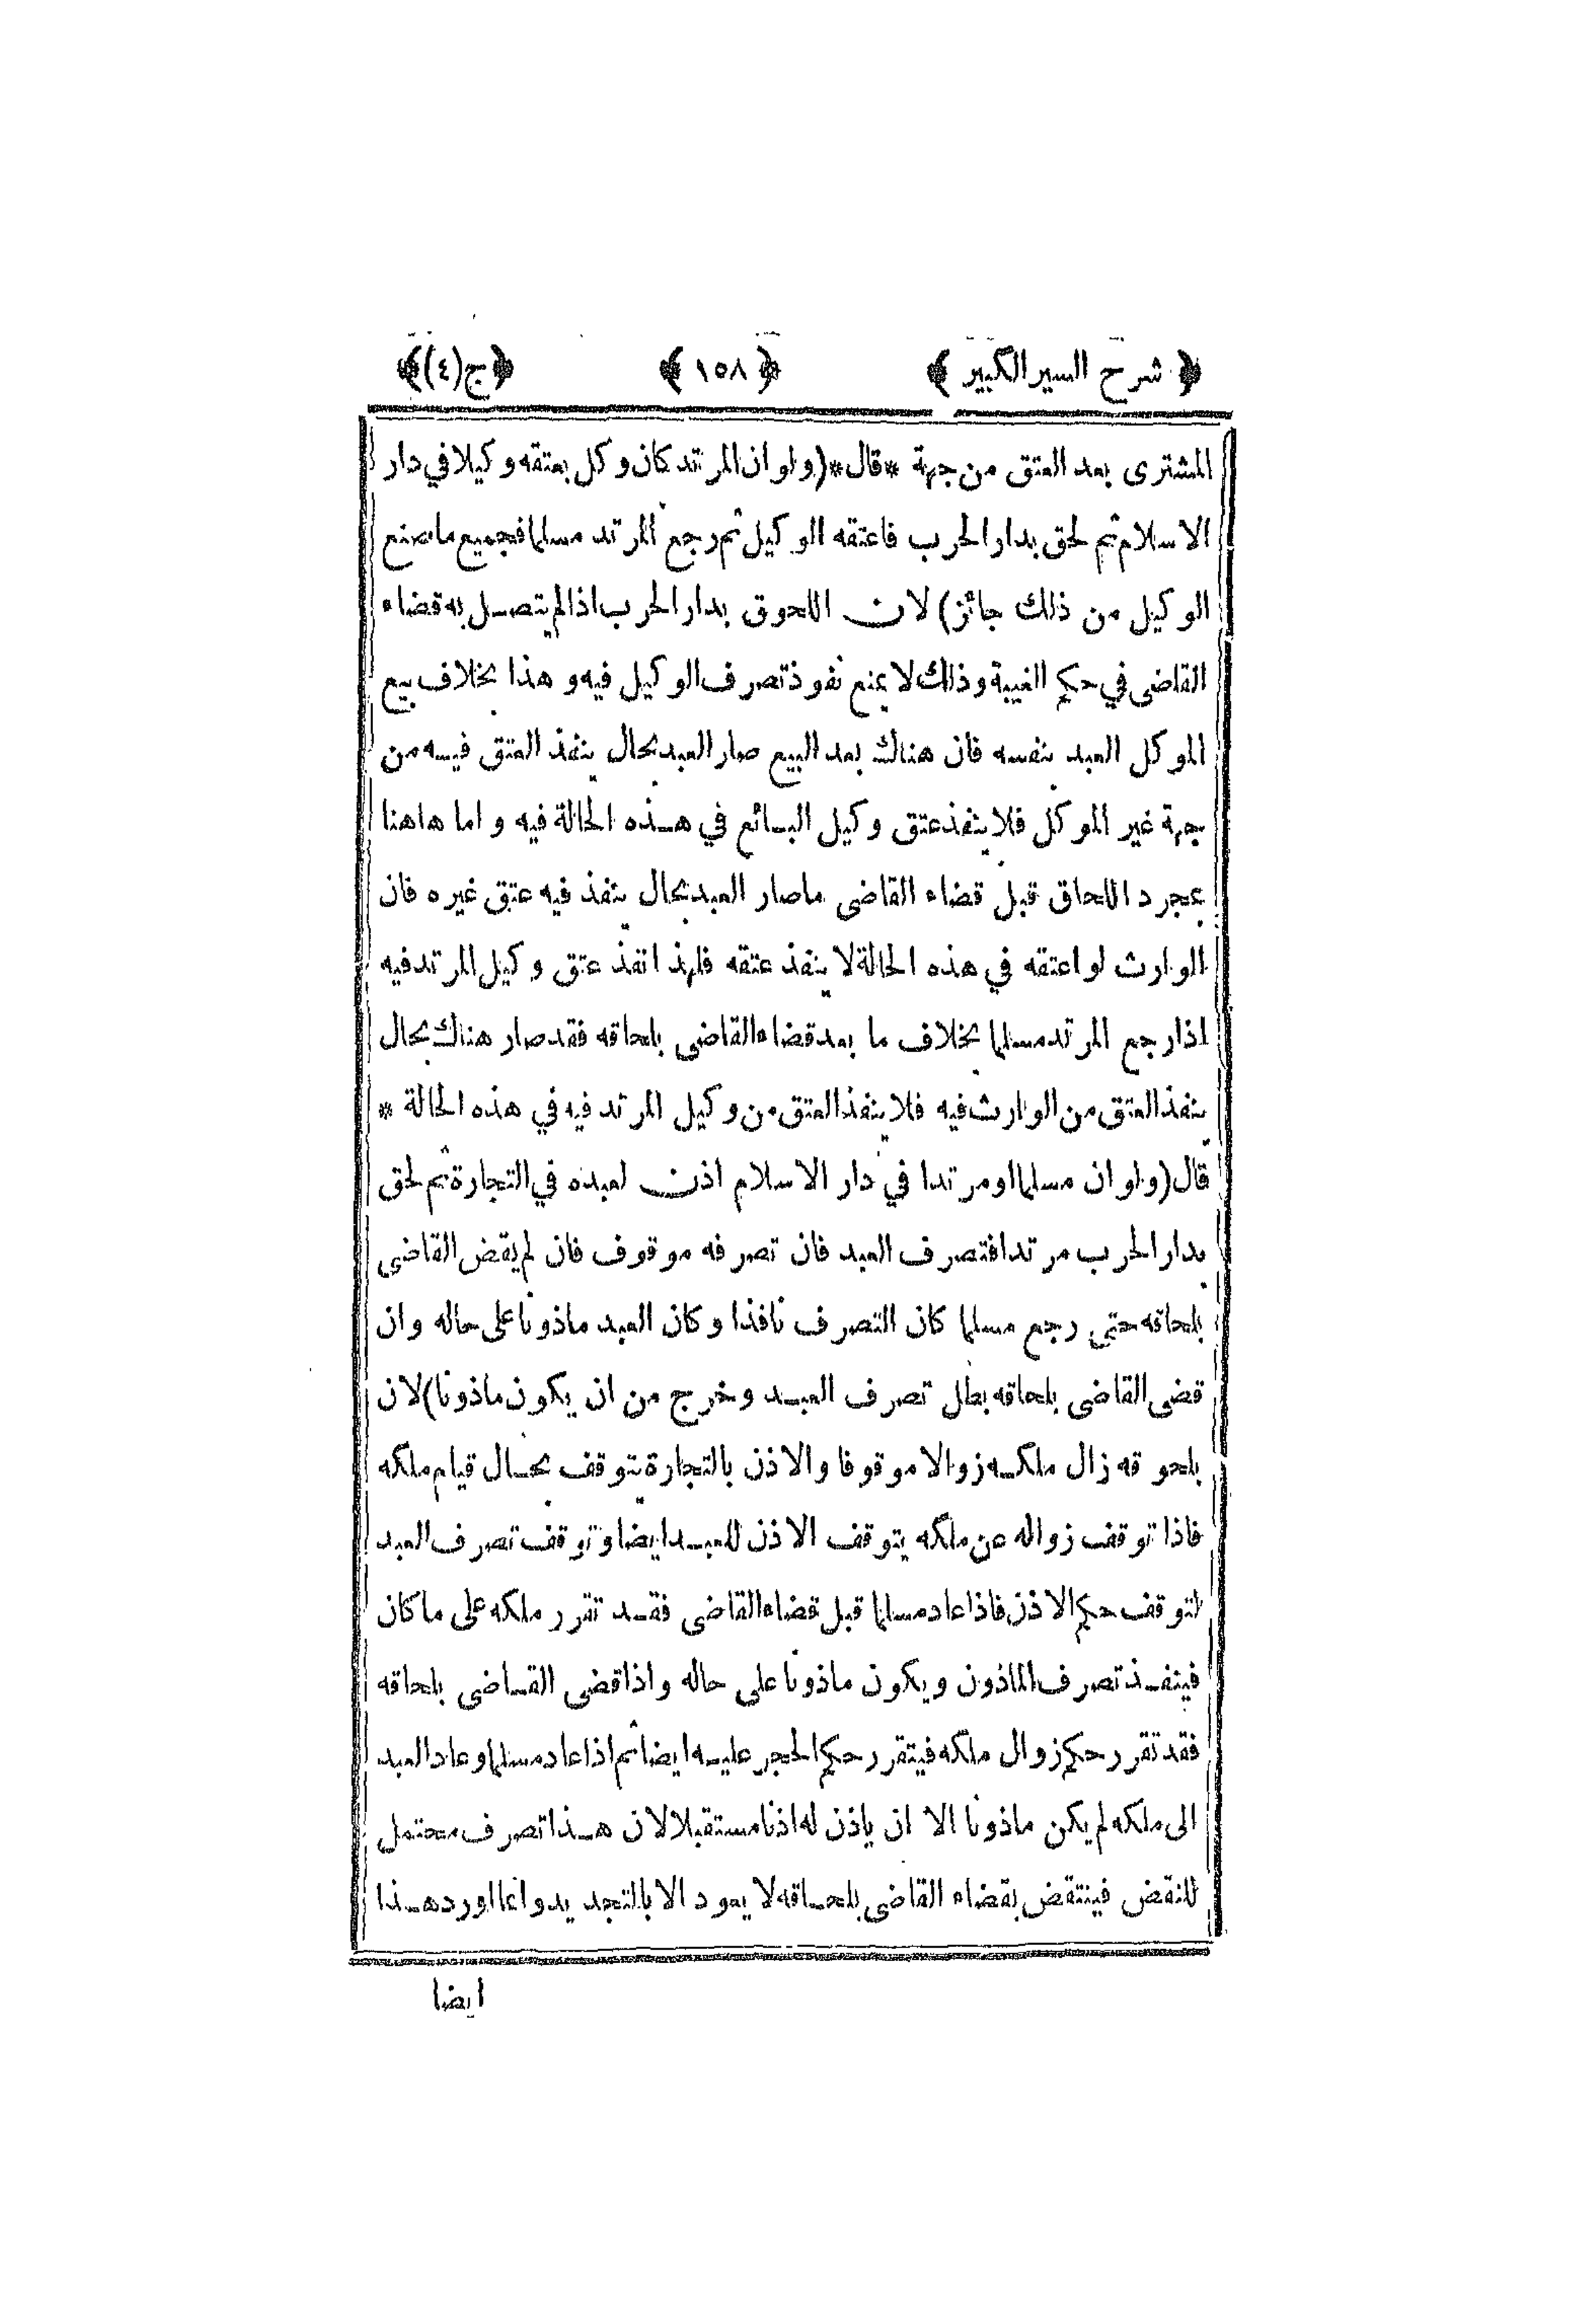 ﴿ شرح السير الكبير ﴾ ﴿ ١٥٨ ﴾ ﴿ ج (٤) ﴾
المشترى بعد العتق من جهة * قال * (ولو ان المرتد كان وكل بعتقه وكيلا في دار
الاسلام ثم لحق بدار الحرب فاعتقه الوكيل ثم رجع المرتد مسلما فجميع ما صنع
الوكيل من ذلك جائز) لان اللحوق بدار الحرب اذا لم يتصل به قضاء
القاضى في حكم الغيبة وذلك لا يمنع نفوذ تصرف الوكيل فيه وهذا بخلاف بيع
الموكل العبد بنفسه فان هناك بعد البيع صار العبد بحال ينفذ العتق فيه من
جهة غير الموكل فلا ينفذ عتق وكيل البائع في هذه الحالة فيه واما هاهنا
بمجرد اللحاق قبل قضاء القاضى ما صار العبد بحال ينفذ فيه عتق غيره فان
الوارث لو اعتقه في هذه الحالة لا ينفذ عتقه فلهذا نفذ عتق وكيل المرتد فيه
اذا رجع المرتد مسلما بخلاف ما بعد قضاء القاضى بلحاقه فقد صار هناك بحال
ينفذ العتق من الوارث فيه فلا ينفذ العتق من وكيل المرتد فيه في هذه الحالة *
قال (ولو ان مسلما او مرتدا في دار الاسلام اذن لعبده في التجارة ثم لحق
بدار الحرب مرتدا فتصرف العبد فان تصرفه موقوف فان لم يقض القاضى
بلحاقه حتى رجع مسلما كان التصرف نافذا وكان العبد ماذونا على حاله وان
قضى القاضى بلحاقه بطل تصرف العبد وخرج من ان يكون ماذونا) لان
بلحوقه زال ملكه زوالا موقوفا والاذن بالتجارة يتوقف بحال قيام ملكه
فاذا توقف زواله عن ملكه يتوقف الاذن للعبد ايضا وتوقف تصرف العبد
لتوقف حكم الاذن فاذا عاد مسلما قبل قضاء القاضى فقد تقرر ملكه على ما كان
فينفذ تصرف الماذون ويكون ماذونا على حاله واذا قضى القاضى بلحاقه
فقد تقرر حكم زوال ملكه فيتقرر حكم الحجر عليه ايضا ثم اذا عاد مسلما وعاد العبد
الى ملكه لم يكن ماذونا الا ان ياذن له اذنا مستقبلا لان هذا تصرف محتمل
للنقض فينتقض بقضاء القاضى بلحاقه لا يعود الا بالتجديد وانما اورد هذا
ايضا